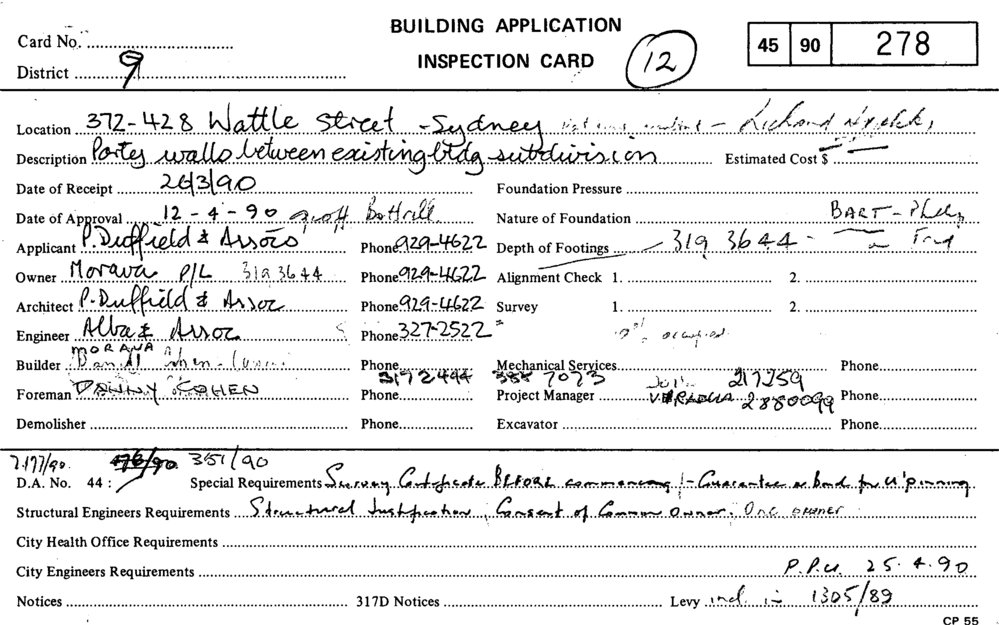 BUILDING APPLICATION
INSPECTION CARD
Card No.
District 9
12
45 90 278
Location 372-428 Wattle Street - Sydney
Description Party walls between existing bldg subdivision Estimated Cost $
Date of Receipt 26/3/90 Foundation Pressure
Date of Approval 12-4-90 Geoff Bottrill Nature of Foundation BART -
Applicant P. Duffield & Assocs Phone 929-4622 Depth of Footings 319 3644 -
Owner Morava P/L 319 3644 Phone 929-4622 Alignment Check 1. 2.
Architect P. Duffield & Assoc Phone 929-4622 Survey 1. 2.
Engineer Alba & Assoc Phone 327-2522 occupied
Builder MORAVA Phone Mechanical Services Phone
Foreman DANNY COHEN Phone 3192444 388 7073 Project Manager 217259 2880099 Phone
Demolisher Phone Excavator Phone
476/90 351/90
D.A. No. 44 : Special Requirements Survey Certificate BEFORE commencing - Guarantee or Bond for U'pinning
Structural Engineers Requirements Structural Justification, Consent of Common Owner. One owner
City Health Office Requirements
City Engineers Requirements P.P.U. 25.4.90
Notices 317D Notices Levy incl. in 1305/89
CP 55